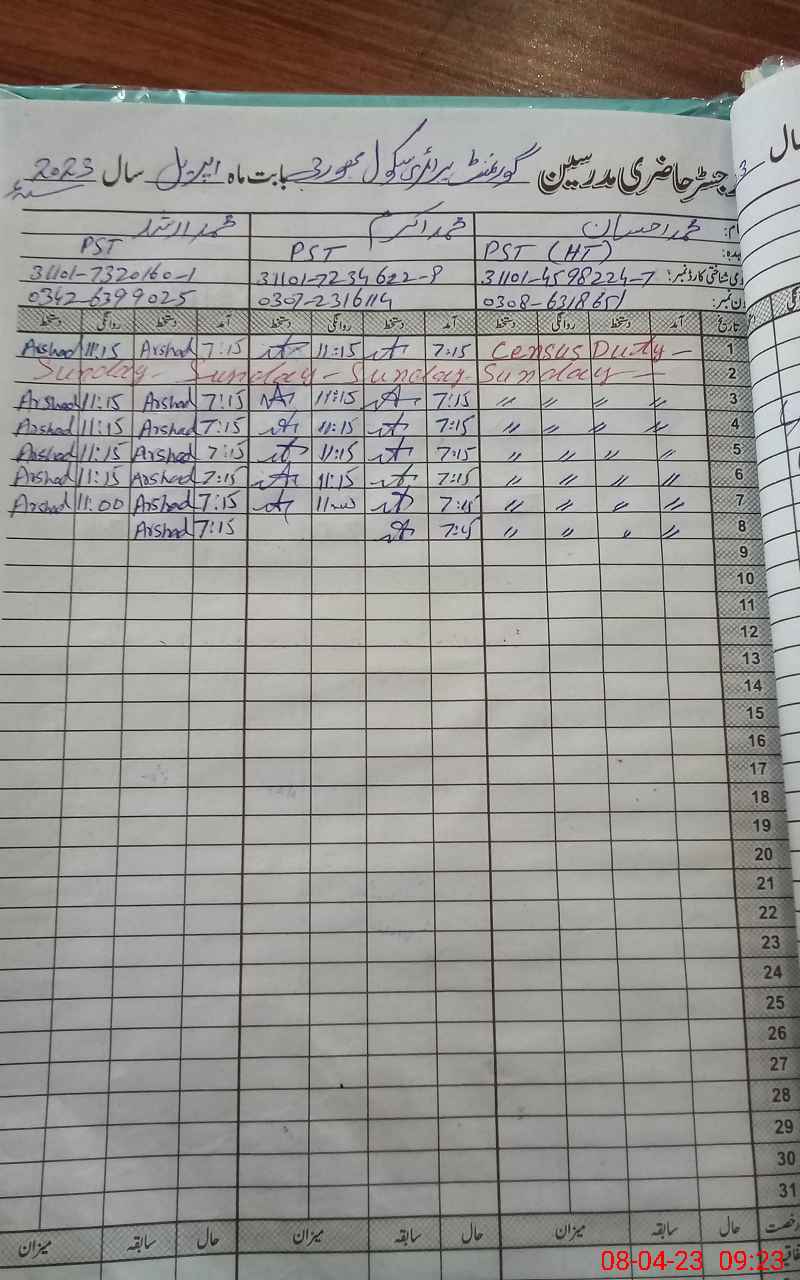 رجسٹر حاضری مدرسین گورنمنٹ پرائمری سکول بابت ماہ اپریل سال 2023
نام: محمد احسان محمد اکرم محمد ارشد
عہدہ: PST (HT) PST PST
قومی شناختی کارڈ نمبر: 31101-4598224-7 31101-7234622-8 31101-7320160-1
فون نمبر: 0308-6318651 0307-2316114 0342-6399025
تاریخ آمد دستخط روانگی دستخط آمد دستخط روانگی دستخط آمد دستخط روانگی دستخط
1 Census Duty - 7:15 11:15 7:15 Arshad 11:15 Arshad
2 Sunday - Sunday - Sunday - Sunday -
3 〃 〃 〃 〃 7:15 11:15 7:15 Arshad 11:15 Arshad
4 〃 〃 〃 〃 7:15 11:15 7:15 Arshad 11:15 Arshad
5 〃 〃 〃 〃 7:15 11:15 7:15 Arshad 11:15 Arshad
6 〃 〃 〃 〃 7:15 11:15 7:15 Arshad 11:15 Arshad
7 〃 〃 〃 〃 7:15 11:00 7:15 Arshad 11:00 Arshad
8 〃 〃 〃 〃 7:15 7:15 Arshad
9
10
11
12
13
14
15
16
17
18
19
20
21
22
23
24
25
26
27
28
29
30
31
رخصت حال سابقہ میزان حال سابقہ میزان حال سابقہ میزان
08-04-23 09:23